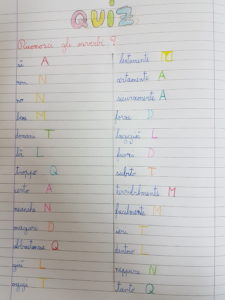 QUIZ
Riconosci gli avverbi?
sì A
non N
no N
bene M
domani T
là L
troppo Q
certo A
neanche N
magari D
abbastanza Q
qui L
oggi T
lentamente M
certamente A
sicuramente A
forse D
laggiù L
fuori D
subito T
terribilmente M
facilmente M
ieri T
dentro L
neppure N
tanto Q